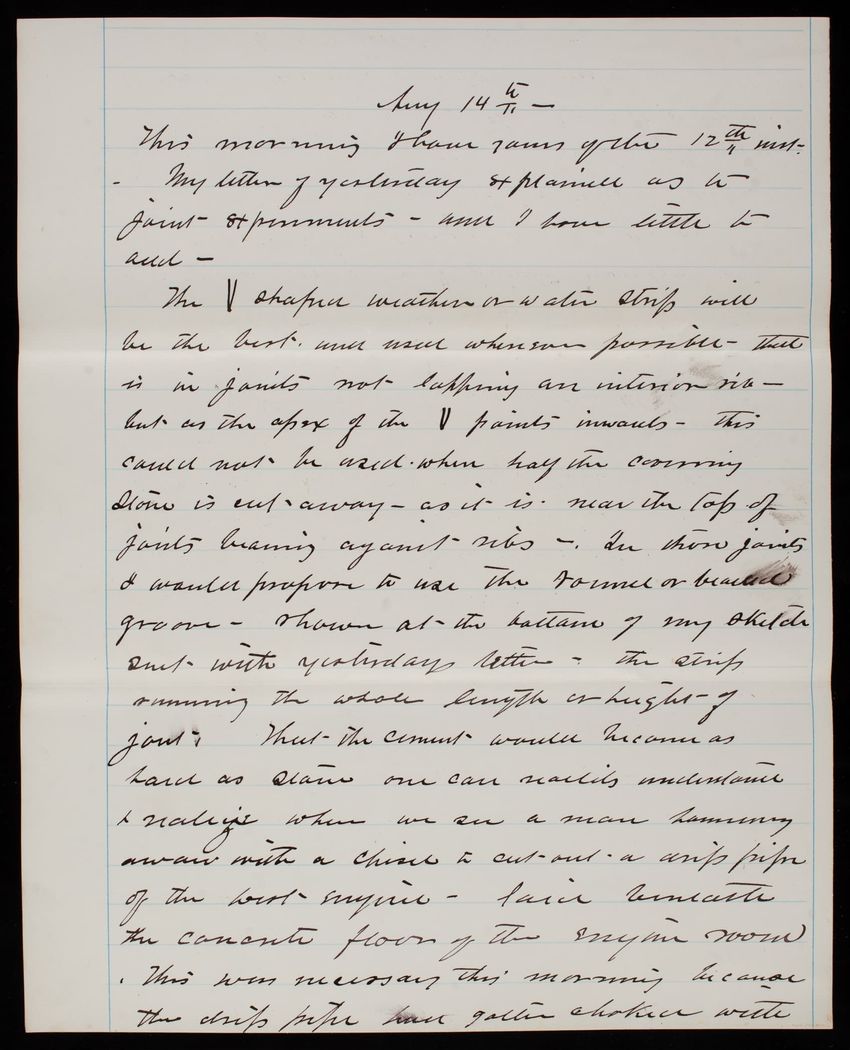 Aug 14th —
This morning I have yours of the 12th inst.
- My letter of yesterday explained as to
joint experiments - and I have little to
add —
The V shaped weather or water strip will
be the best. and used whenever possible - that
is in joints not lapping an interior rib —
but as the apex of the V points inwards - this
could not be used when half the covering
stone is cut away - as it is near the top of
joints bearing against ribs -. In those joints
I would propose to use the round or beaded
groove - shown at the bottom of my sketch
sent with yesterdays letter - the strip
running the whole length or height of
joint. That the cement would become as
hard as stone one can readily understand
& realize when we see a man hammering
away with a chisel to cut out a drip pipe
of the west engine - laid beneath
the concrete floor of the engine room
. This was necessary this morning because
the drip pipe had gotten choked with